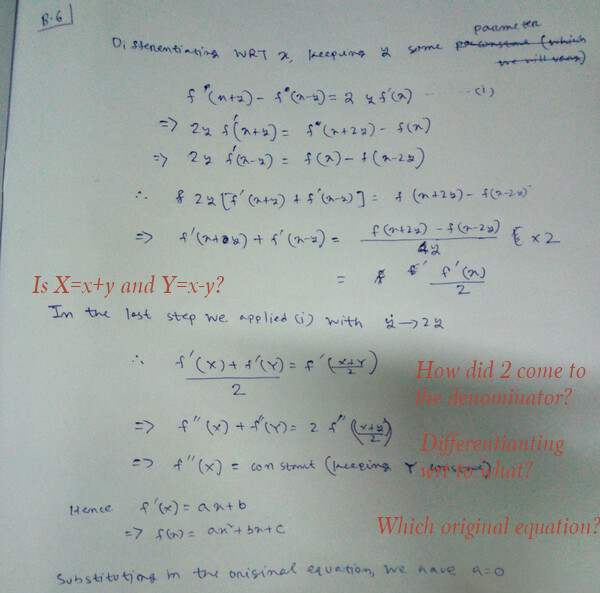 B.6
parameter
Differentiating WRT x, keeping y some
f(x+y) - f(x-y) = 2 y f'(x) ------- (i)
=> 2y f'(x+y) = f(x+2y) - f(x)
=> 2y f'(x-y) = f(x) - f(x-2y)
∴ 2y [f'(x+y) + f'(x-y)] = f(x+2y) - f(x-2y)
=> f'(x+y) + f'(x-y) = f(x+2y) - f(x-2y) / 4y × 2
= f'(x) / 2
Is X=x+y and Y=x-y?
In the last step we applied (i) with y → 2y
∴ f'(X) + f'(Y) / 2 = f'(X+Y / 2)
How did 2 come to
the denominator?
=> f''(X) + f''(Y) = 2 f''(X+Y / 2)
Differentianting
wrt to what?
=> f''(X) = constant (keeping Y constant)
Hence f'(x) = ax+b
=> f(x) = ax²+bx+c
Which original equation?
Substituting in the original equation, we have a=0